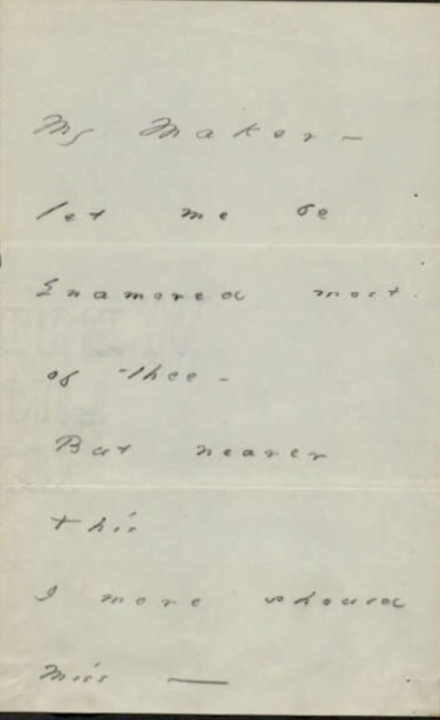 My Maker –
let me be
Enamored most
of thee –
But nearer
this
I more should
Miss —